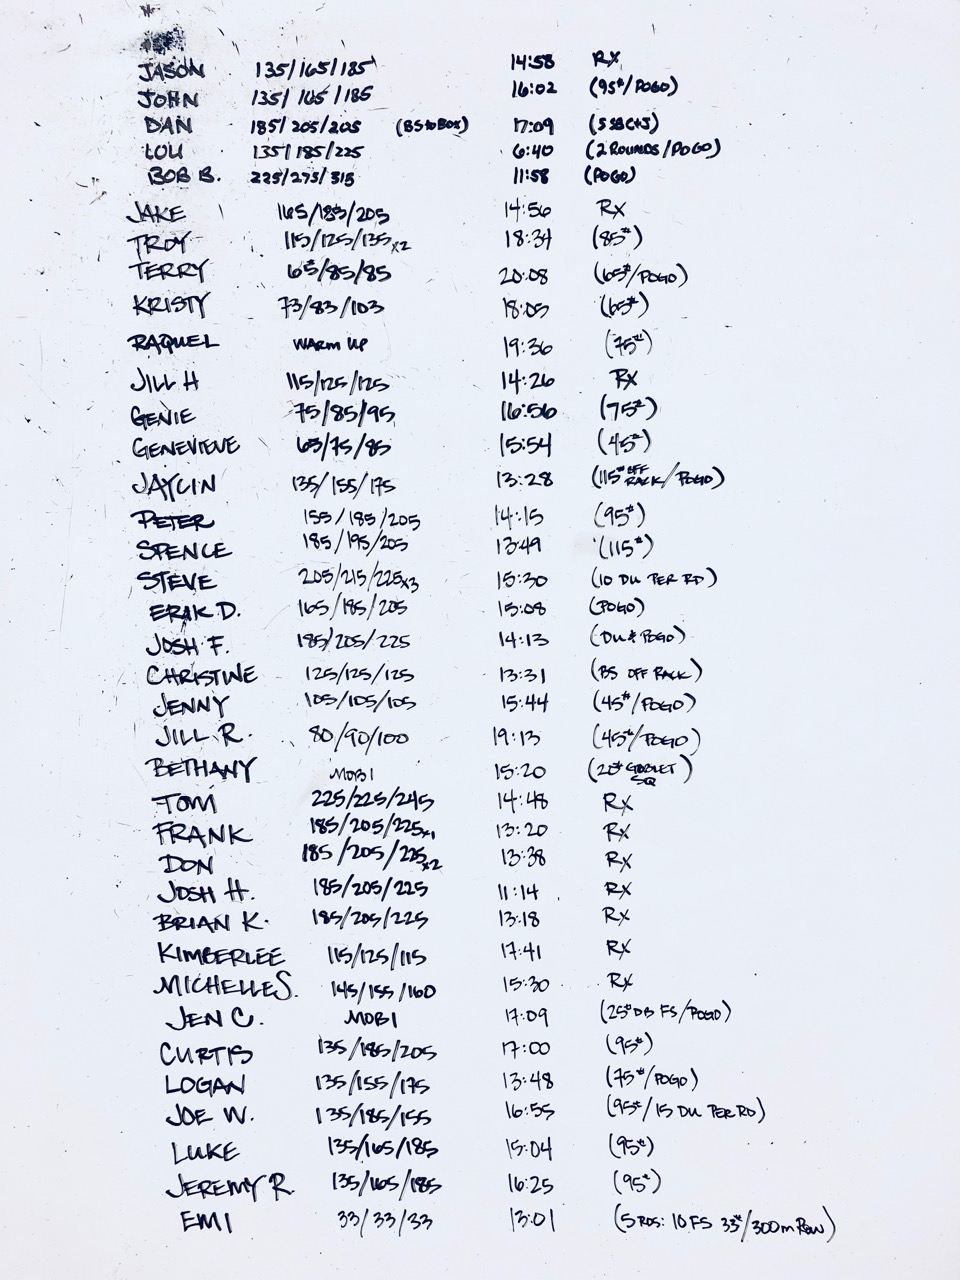 JASON 135/165/185 14:58 RX
JOHN 135/165/185 16:02 (95#/POGO)
DAN 185/205/205 (BS to BOX) 17:09 (SSBC+J)
LOU 135/185/225 6:40 (2 ROUNDS/POGO)
BOB B. 225/275/315 11:58 (POGO)
JAKE 165/185/205 14:56 RX
TROY 115/125/135x2 18:34 (85#)
TERRY 65/85/85 20:08 (65#/POGO)
KRISTY 73/83/103 18:05 (65#)
RAQUEL WARM UP 19:36 (75#)
JILL H 115/125/125 14:26 RX
GENIE 75/85/95 16:56 (75#)
GENEVIEVE 65/75/85 15:54 (45#)
JAYCIN 135/155/175 13:28 (115# OFF RACK/POGO)
PETER 155/185/205 14:15 (95#)
SPENCE 185/195/205 13:49 (115#)
STEVE 205/215/225x3 15:30 (10 DU PER RD)
ERIK D. 165/185/205 15:08 (POGO)
JOSH F. 185/205/225 14:13 (DU & POGO)
CHRISTINE 125/125/125 13:31 (BS OFF RACK)
JENNY 105/105/105 15:44 (45#/POGO)
JILL R. 80/90/100 19:13 (45#/POGO)
BETHANY MOBI 15:20 (20# GOBLET SQ)
TOM 225/225/245 14:48 RX
FRANK 185/205/225x1 13:20 RX
DON 185/205/225x2 13:38 RX
JOSH H. 185/205/225 11:14 RX
BRIAN K. 185/205/225 13:18 RX
KIMBERLEE 115/125/115 17:41 RX
MICHELLE S. 145/155/160 15:30 RX
JEN C. MOBI 17:09 (25# DB FS/POGO)
CURTIS 135/185/205 17:00 (95#)
LOGAN 135/155/175 13:48 (75#/POGO)
JOE W. 135/185/155 16:55 (95#/15 DU PER RD)
LUKE 135/165/185 15:04 (95#)
JEREMY R. 135/165/185 16:25 (95#)
EMI 33/33/33 13:01 (5 RDS: 10 FS 33#/300m Row)